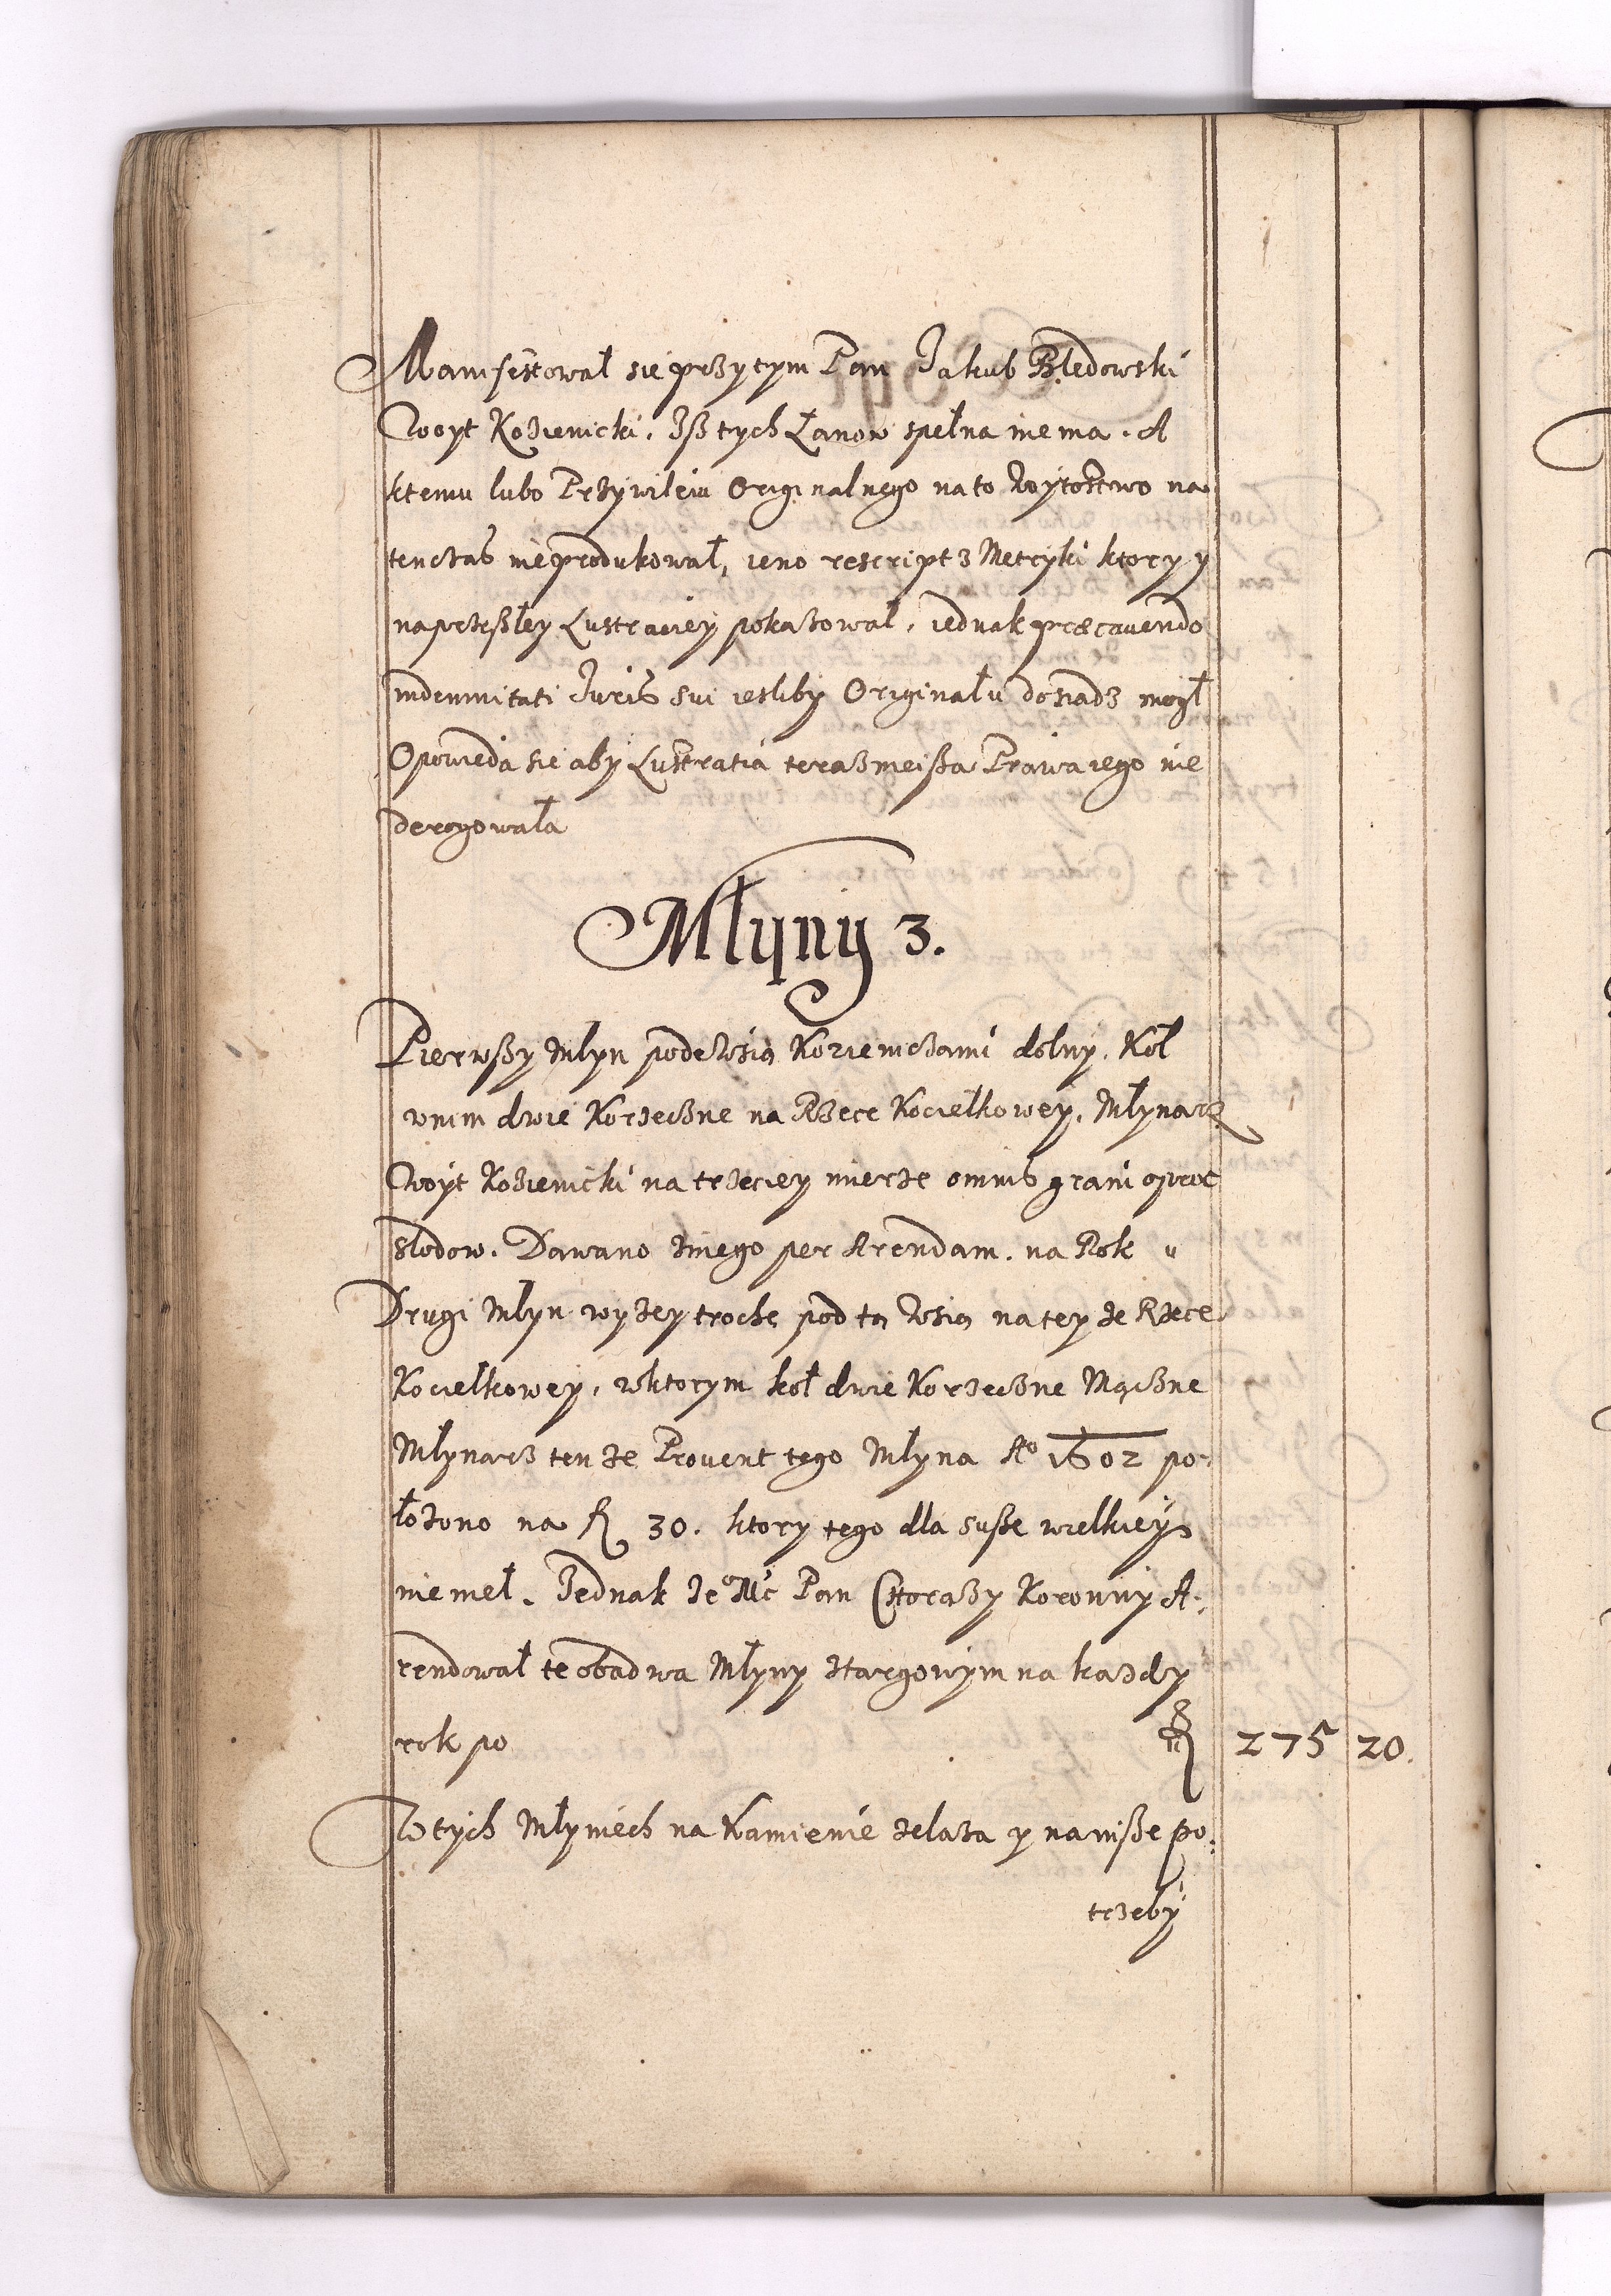 Manifestował sie przytym Pan Jakub Błedowski
Woyt Kozienicki. Jsz tych Łanow spełna niema. A
ktemu lubo Przywileiu Originalnego nato Woytostwo na
tenczas nieprodukował, ieno rescript z Metryki ktory y
naprzeszłey Lustraciey pokazował, iednak præcauendo
indemnitati Juris sui iesliby Originału dosiadz mogł
Opowieda sie aby Lustratia terazmeisza Prawa iego nie
derogowała
Młyny 3.
Pierwszy Młyn pode Wsią Koziemczami dolny. Koł
wnim dwie Korzeczne na Rzece Kociełkowey. Młynarz
Woyt Kozienicki na trzeciey mierze omnis grani oprocz
słodow. Dawano zniego per Arendam. na Rok "
Drugi Młyn wyzey troche pod tą Wsią natey ze Rzece
Kociełkowey, wktorym koł dwie Korzeczne Mączne
Młynarz ten ze Prouent tego Młyna Aº 1602 po-
łozono na fl 30. ktory tego dla susze wielkiey
niemeł. Jednak Je Mc Pan Chorązy Koronny A-
rendował te obadwa Młyny ztargowym na kazdy
rok po fl 275 20.
W tych Młyniech na Kamienie zelaza y na insze po-
trzeby